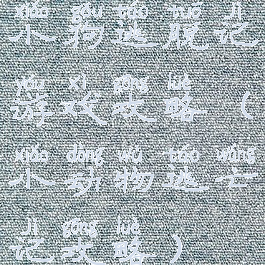 gǒu táo tuō jì
狗逃脱记
yóu xì gōng lüè
游戏攻略（
xiǎo dòng wù táo wáng
小动物逃亡
jì gōng lüè
记攻略）